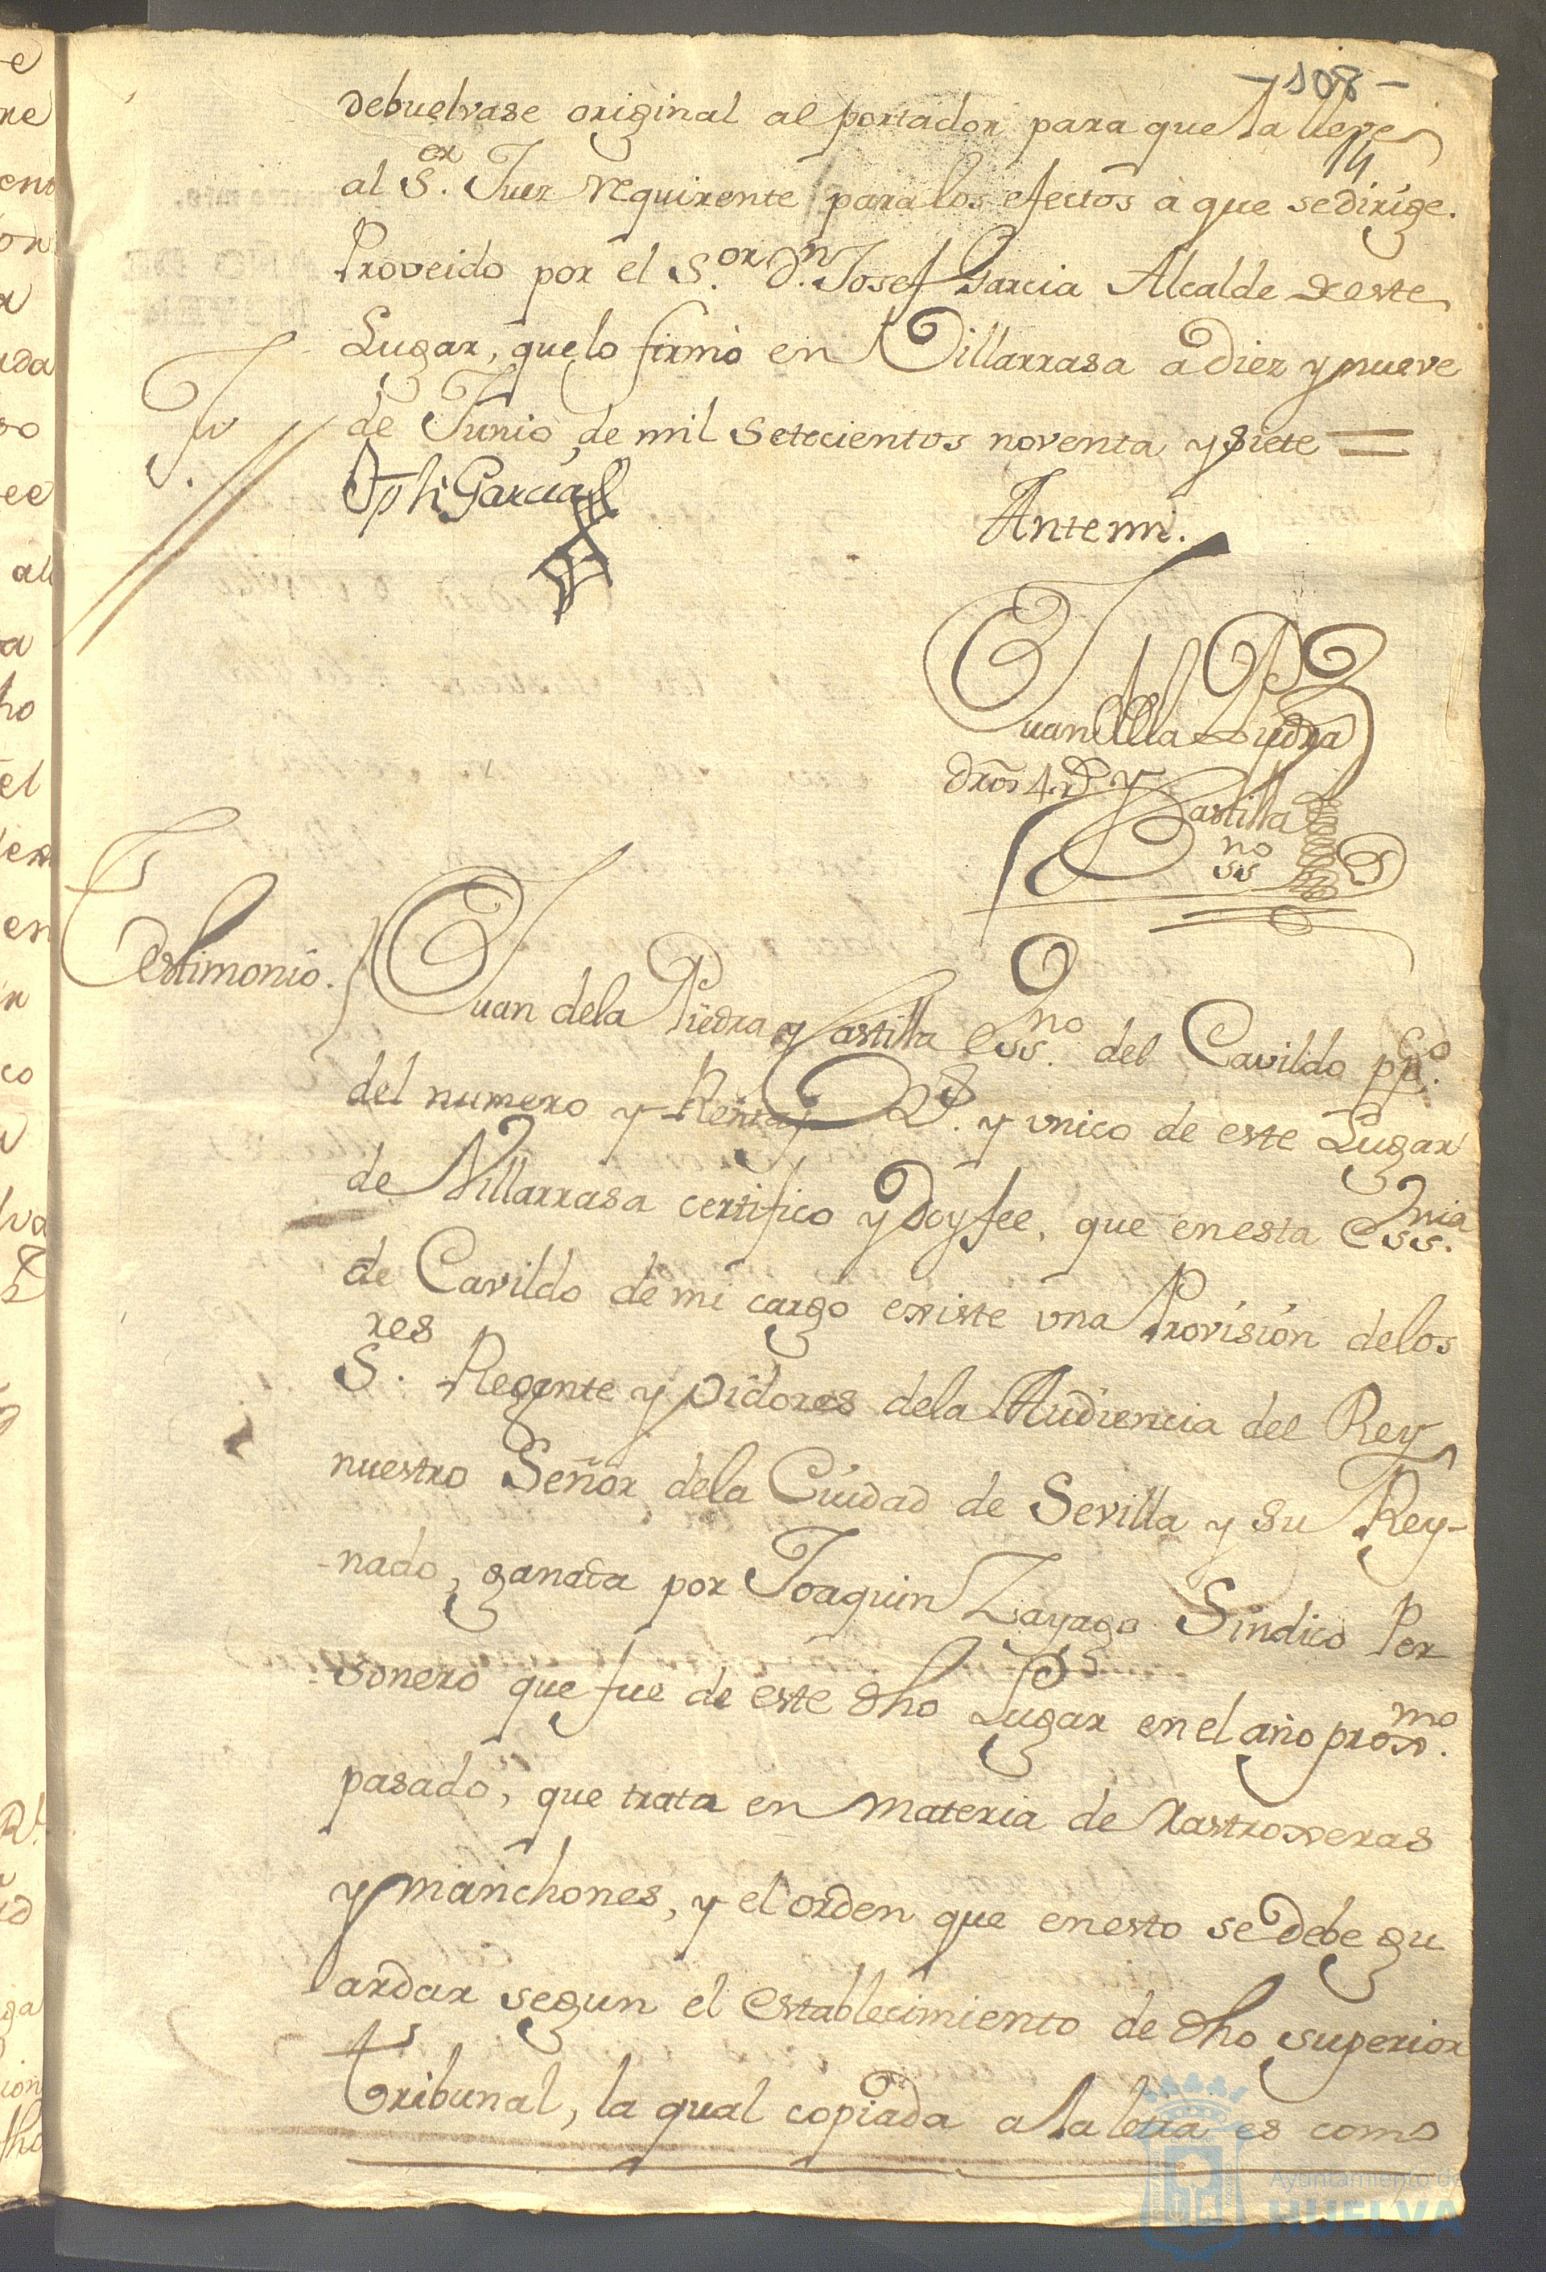 -108-
debuelvase original al portador para que la lleve
14
al S.or Juez requirente para los efectos à que se dirige.
Proveido por el S.or D.n Josef Garcia Alcalde de este
Lugar, que lo firmò en Villarrasa a diez y nueve
de Junio de mil setecientos noventa y siete =
Jph Garcia
Ante mi.
Juan de la Piedra
dros 4 r.s y
Castilla
ssno
Testimonio.
Juan de la Piedra y Castilla Ess.no del Cavildo pp.co
del numero y Rentas R.s y unico de este Lugar
de Villarrasa certifico y doy fee, que en esta Ess.nia
de Cavildo de mi cargo existe una Provision de los
S.res Regente y oidores de la Audiencia del Rey
nuestro Señor de la Ciudad de Sevilla y su Rey-
nado, ganada por Joaquin Zayago Sindico Per
sonero que fue de este dho Lugar en el año prox.mo
pasado, que trata en materia de rastroxeras
y manchones, y el orden que en esto se debe gu
ardar segun el establecimiento de dho superior
tribunal, la qual copiada a la letra es como
Ayuntamiento de
HUELVA